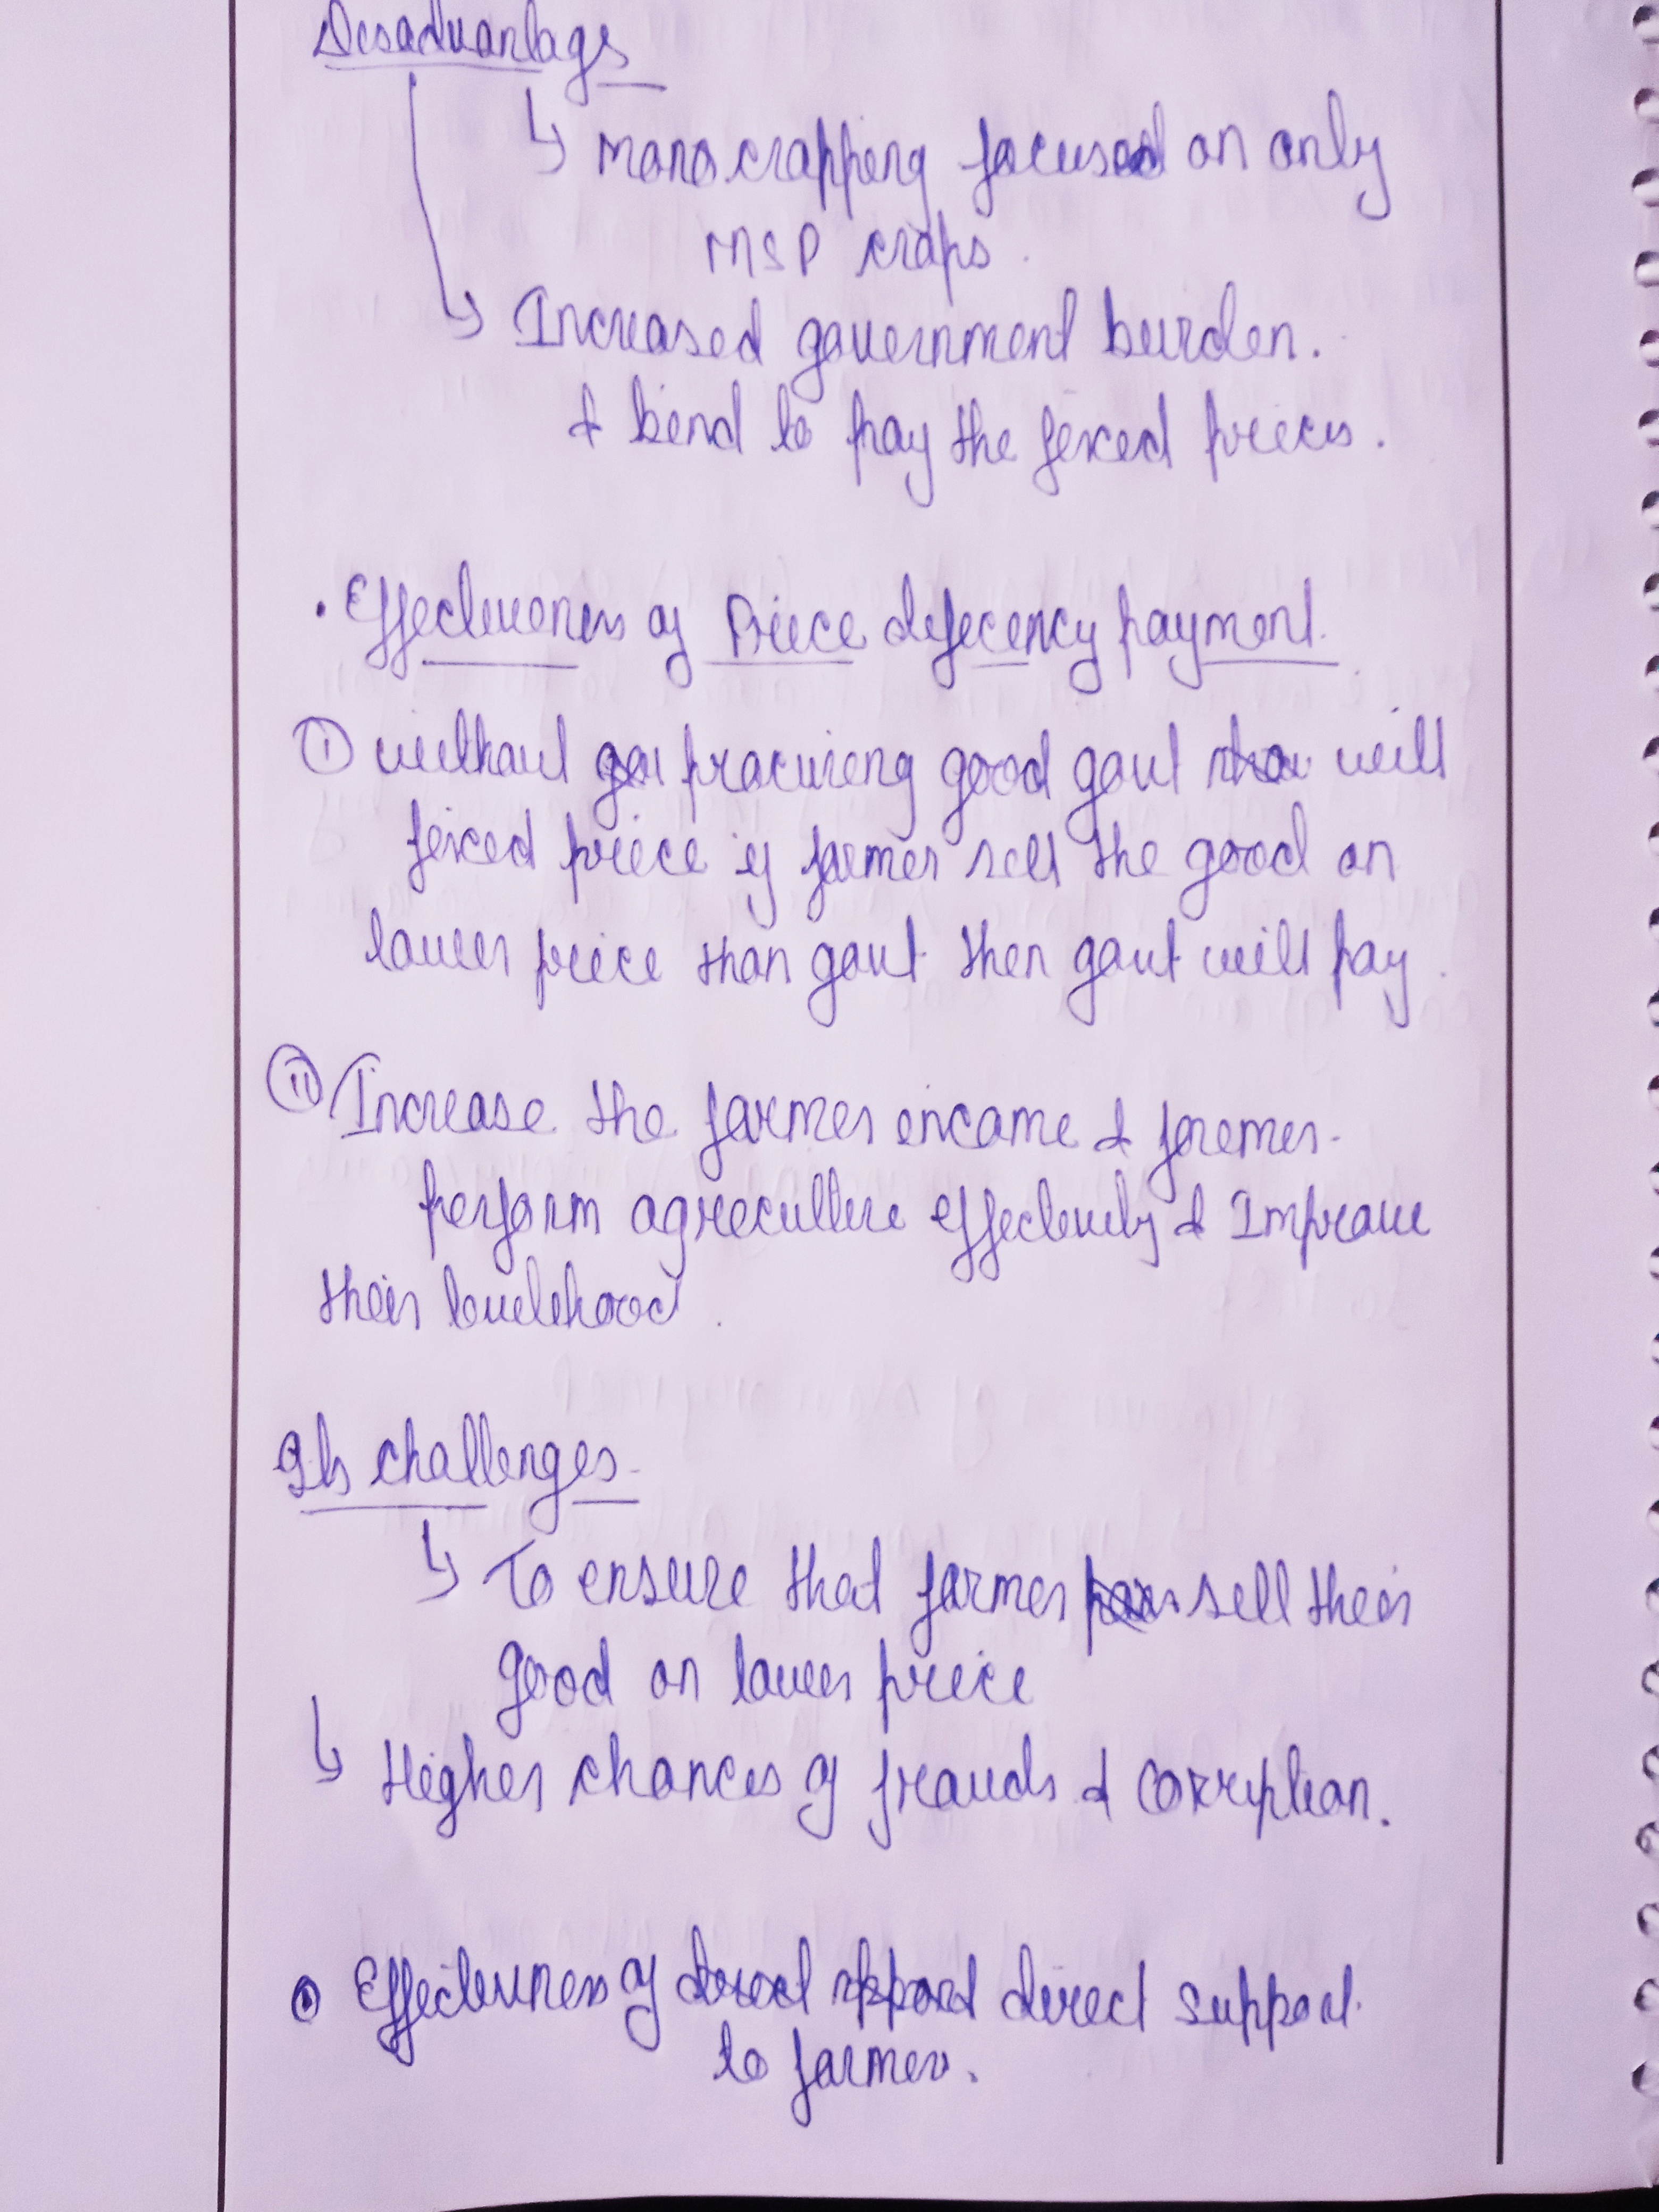 Disadvantags
↳ Monocropping focused on only
MSP crops.
↳ Increased government burden.
& bind to pay the fixed prices.
• Effectiveness of Price deficency payment.
① without procuring good govt will
fixed price if farmer sell the good on
lower price than govt then govt will pay.
② Increase the farmer income & farmer
perform agreculture effectively & Improve
their livelihood.
Its challenges
↳ To ensure that farmer sell their
good on lower price
↳ Higher chances of frauds & corruption.
• Effectiveness of direct support
to farmer.